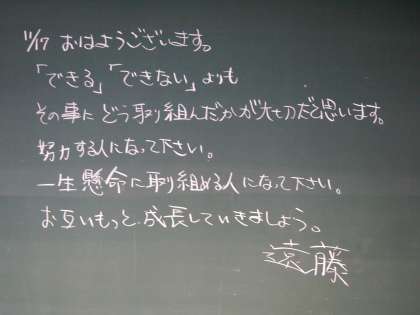 11/17 おはようございます。
「できる」「できない」よりも
その事にどう取り組んだかが大切だと思います。
努力する人になって下さい。
一生懸命に取り組める人になって下さい。
お互いもっと成長していきましょう。
遠藤